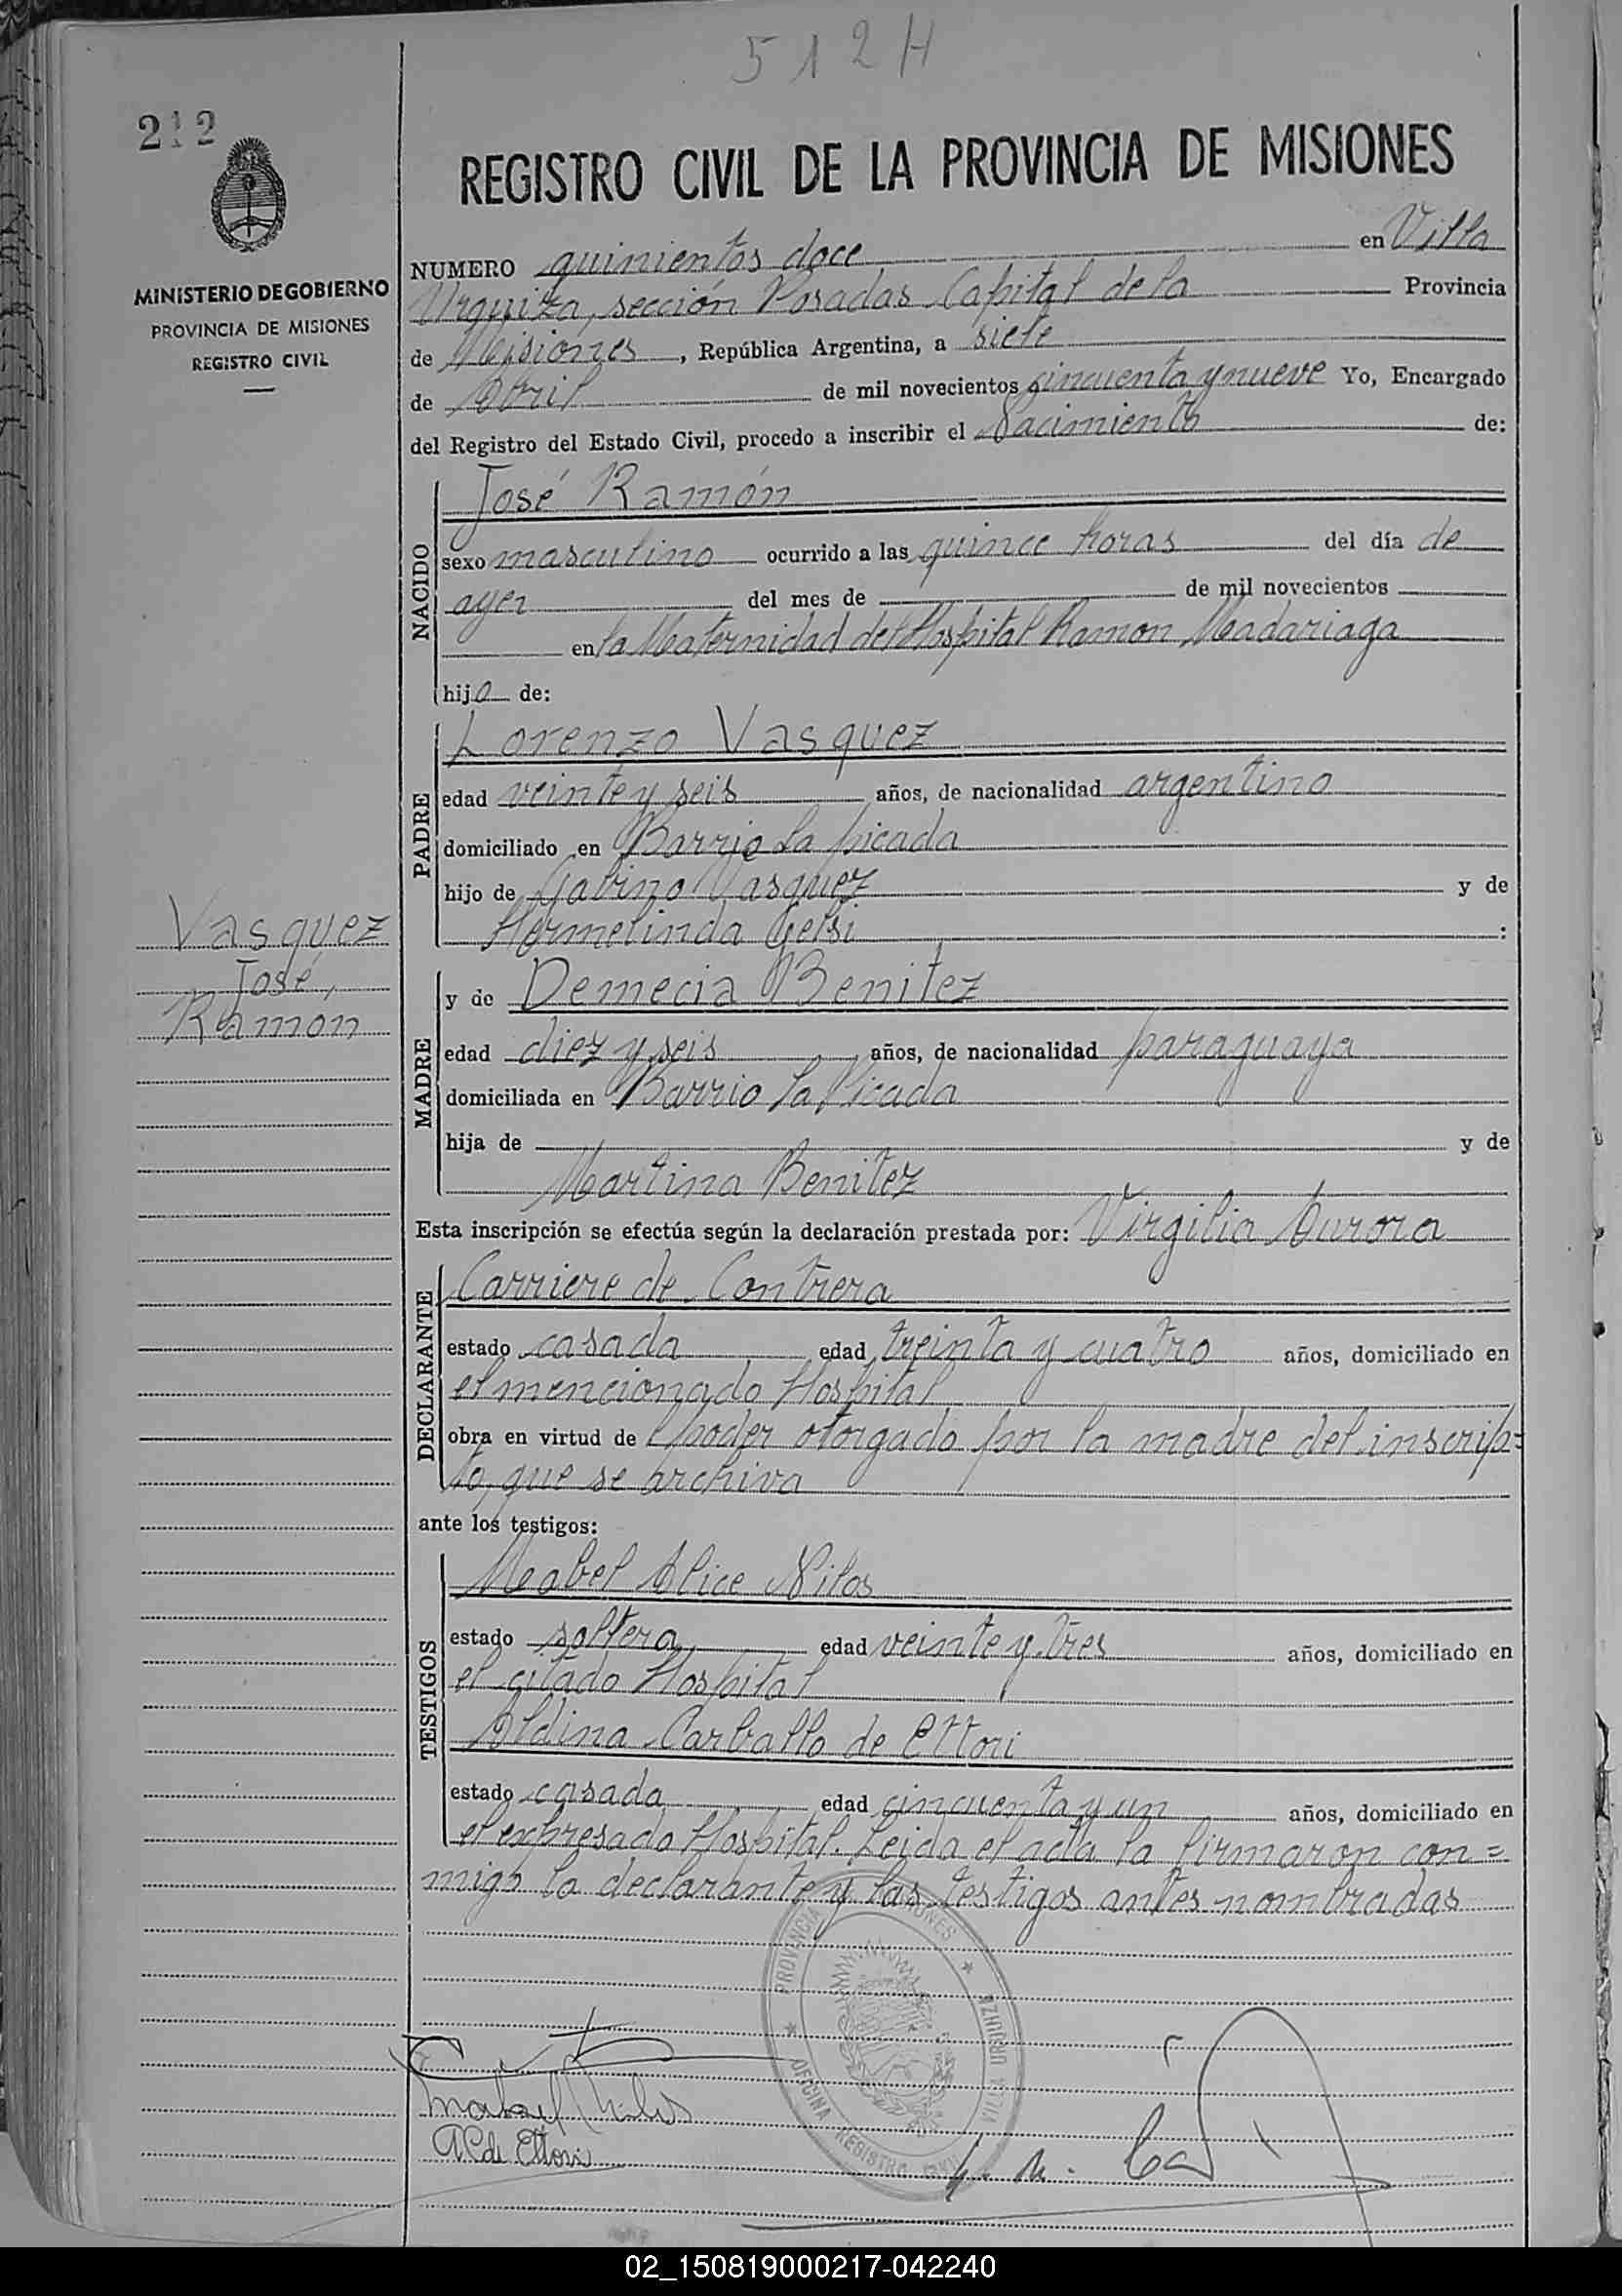 512H
212
REGISTRO CIVIL DE LA PROVINCIA DE MISIONES
MINISTERIO DE GOBIERNO
PROVINCIA DE MISIONES
REGISTRO CIVIL
NUMERO quinientos doce en Villa
Urquiza, sección Posadas Capital de la Provincia
de Misiones, República Argentina, a siete
de Abril de mil novecientos cincuenta y nueve Yo, Encargado
del Registro del Estado Civil, procedo a inscribir el Nacimiento de:
NACIDO
José Ramón
sexo masculino ocurrido a las quince horas del día de
ayer del mes de de mil novecientos
en la Maternidad del Hospital Ramon Madariaga
hijo de:
PADRE
Lorenzo Vasquez
edad veinte y seis años, de nacionalidad argentino
domiciliado en Barrio La picada
hijo de Gabino Vasquez y de
Hermelinda Gelsi:
Vasquez
José
Ramon
MADRE
y de Demecia Benitez
edad diez y seis años, de nacionalidad paraguaya
domiciliada en Barrio La Picada
hija de y de
Martina Benitez
Esta inscripción se efectúa según la declaración prestada por: Virgilia Aurora
DECLARANTE
Carriere de Contrera
estado casada edad treinta y cuatro años, domiciliado en
el mencionado Hospital
obra en virtud del poder otorgado por la madre del inscrip=
to, que se archiva
ante los testigos:
TESTIGOS
Mabel Alice Nilos
estado soltera edad veinte y tres años, domiciliado en
el citado Hospital
Aldina Carballo de Ettori
estado casada edad cincuenta y un años, domiciliado en
el expresado Hospital. Leida el acta la firmaron con=
migo la declarante y las testigos antes nombradas
PROVINCIA MISIONES
OFICINA REGISTRO CIVIL
VILLA URQUIZA
A C de Ettori
02_150819000217-042240